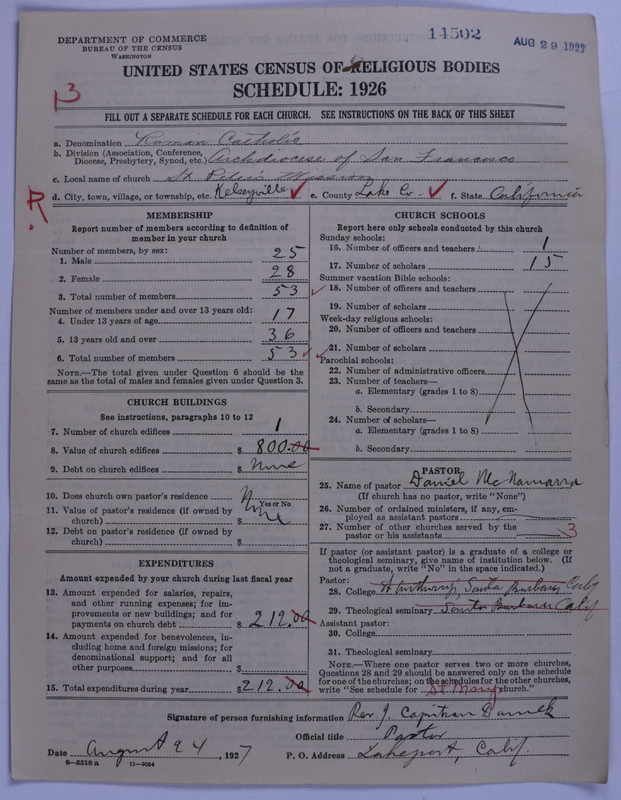 14502
DEPARTMENT OF COMMERCE
BUREAU OF THE CENSUS
WASHINGTON
AUG 29 1927
UNITED STATES CENSUS OF RELIGIOUS BODIES
SCHEDULE: 1926
13
FILL OUT A SEPARATE SCHEDULE FOR EACH CHURCH. SEE INSTRUCTIONS ON THE BACK OF THIS SHEET
a. Denomination Roman Catholic
b. Division (Association, Conference, Diocese, Presbytery, Synod, etc.) Archdiocese of San Francisco
c. Local name of church St Peter's Mission
d. City, town, village, or township, etc. Kelseyville e. County Lake Co. f. State California
R
MEMBERSHIP
Report number of members according to definition of
member in your church
Number of members, by sex:
1. Male 25
2. Female 28
3. Total number of members 53
Number of members under and over 13 years old:
4. Under 13 years of age 17
5. 13 years old and over 36
6. Total number of members 53
NOTE.—The total given under Question 6 should be the
same as the total of males and females given under Question 3.
CHURCH BUILDINGS
See instructions, paragraphs 10 to 12
7. Number of church edifices 1
8. Value of church edifices $ 800.00
9. Debt on church edifices $ None
10. Does church own pastor's residence No
Yes or No
11. Value of pastor's residence (if owned by
church) $ None
12. Debt on pastor's residence (if owned by
church) $
EXPENDITURES
Amount expended by your church during last fiscal year
13. Amount expended for salaries, repairs,
and other running expenses; for im-
provements or new buildings; and for
payments on church debt $ 212.00
14. Amount expended for benevolences, in-
cluding home and foreign missions; for
denominational support; and for all
other purposes $
15. Total expenditures during year $ 212.00
CHURCH SCHOOLS
Report here only schools conducted by this church
Sunday schools:
16. Number of officers and teachers 1
17. Number of scholars 15
Summer vacation Bible schools:
18. Number of officers and teachers
19. Number of scholars
Week-day religious schools:
20. Number of officers and teachers
21. Number of scholars
Parochial schools:
22. Number of administrative officers
23. Number of teachers—
a. Elementary (grades 1 to 8)
b. Secondary
24. Number of scholars—
a. Elementary (grades 1 to 8)
b. Secondary
PASTOR
25. Name of pastor Daniel McNamarra
(If church has no pastor, write "None")
26. Number of ordained ministers, if any, em-
ployed as assistant pastors
27. Number of other churches served by the
pastor or his assistants 3
If pastor (or assistant pastor) is a graduate of a college or
theological seminary, give name of institution below. (If
not a graduate, write "No" in the space indicated.)
Pastor:
28. College St Anthony's, Santa Barbara Calif
29. Theological seminary Santa Barbara Calif
Assistant pastor:
30. College
31. Theological seminary
NOTE.—Where one pastor serves two or more churches,
Questions 28 and 29 should be answered only on the schedule
for one of the churches; on the schedules for the other churches,
write "See schedule for St Mary church."
Signature of person furnishing information Rev J.
Official title Pastor
Date August 24, 1927 P. O. Address Lakeport, Calif
8—5518 a 11—9054